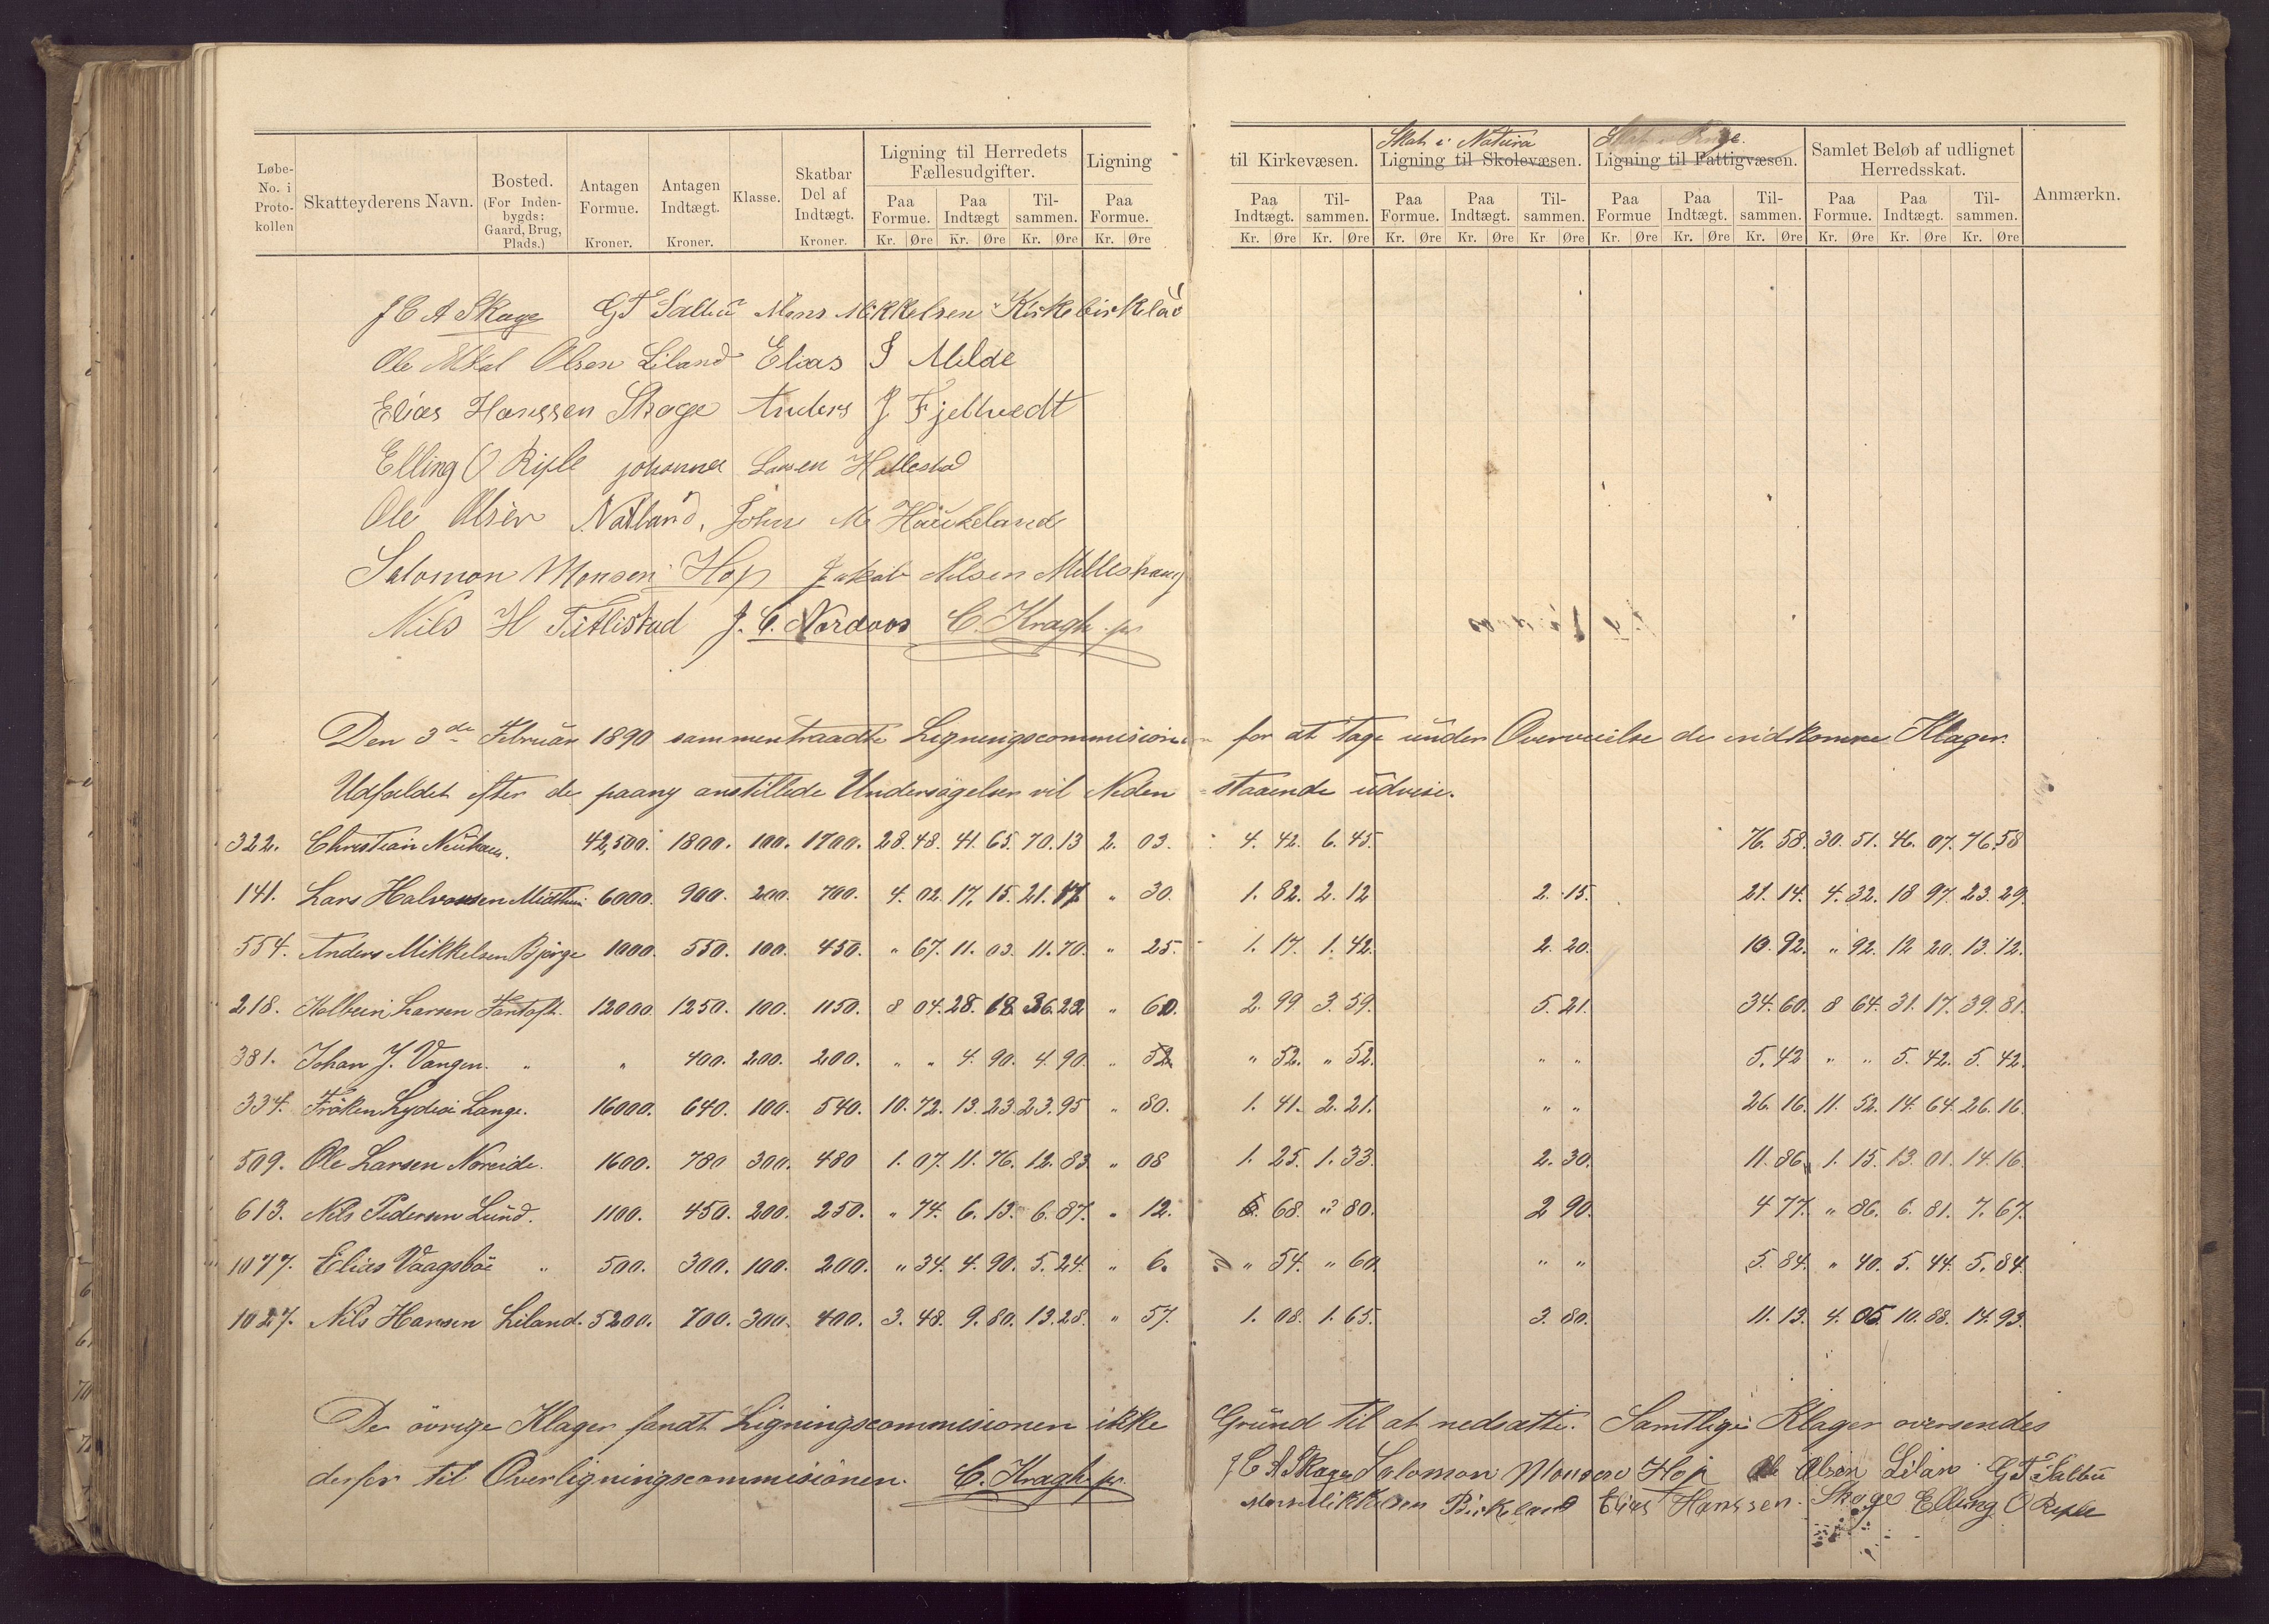 Løbe-No. i Proto-kollen | Skatteyderens Navn. | Bosted. (For Inden-bygds: Gaard, Brug, Plads.) | Antagen Formue. Kroner. | Antagen Indtægt. Kroner. | Klasse. | Skatbar Del af Indtægt. Kroner. | Ligning til Herredets Fællesudgifter. Paa Formue. Kr. Øre | Paa Indtægt Kr. Øre | Til-sammen. Kr. Øre | Ligning Paa Formue. Kr. Øre
til Kirkevæsen. Paa Indtægt. Kr. Øre | Til-sammen. Kr. Øre | Skat i Natura Ligning til Skolevæsen. Paa Formue. Kr. Øre | Paa Indtægt. Kr. Øre | Til-sammen. Kr Øre | Skat i Penge. Ligning til Fattigvæsen. Paa Formue Kr. Øre | Paa Indtægt. Kr. Øre | Til-sammen. Kr. Øre | Samlet Beløb af udlignet Herredsskat. Paa Formue. Kr. Øre | Paa Indtægt. Kr. Øre | Til-sammen. Kr. Øre | Anmærkn.
J C A Skage G T Sælbu Mons Mikkelsen Kirkebirkeland
Ole Olsen Liland Elias J Milde
Elias Hanssen Skage Anders J Fjeltvedt
Elling O Riple Johannes Larsen Hallestad
Ole Olsen Natland, John M Haukeland
Salomon Monsen Hop Jakob Nilsen Milleshaug
Nils H Titlestad J. C. Nordaas C. Kragh
Den 3de Februar 1890 sammentraadte Ligningscommisionen for at tage under Overveielse de indkomne Klager.
Udfaldet efter de paany anstillede Undersøgelser vil Neden-staaende udvise.
322. Christian Neuhaus. 42,500. 1800. 100. 1700. 28. 48. 41. 65. 70. 13 2. 03. 4. 42. 6. 45. 76. 58. 30. 51. 46. 07. 76. 58
141. Lars Halvorsen Midttun 6000. 900. 200. 700. 4. 02. 17. 15. 21. 17 " 30. 1. 82. 2. 12 2. 15. 21. 14. 4. 32. 18 97. 23. 29.
554. Anders Mikkelsen Bjørge 1000. 550. 100. 450. " 67. 11. 03. 11. 70. " 25. 1. 17. 1. 42. 2. 20. 10. 92. " 92. 12 20. 13. 12.
218. Kolbein Larsen Fantoft. 12000. 1250. 100. 1150. 8 04. 28. 18. 36. 22 " 60. 2. 99 3. 59. 5. 21. 34. 60. 8 64. 31. 17. 39. 81.
381. Johan J. Vangen. " " 400. 200. 200. " " 4. 90. 4. 90. " 52 " 52. " 52. " " 5. 42 " " 5. 42. 5. 42.
334. Frøken Lydia Lange. 16000. 640. 100. 540. 10. 72. 13. 23. 23. 95 " 80. 1. 41. 2. 21. " " 26. 16. 11. 52. 14. 64. 26. 16.
509. Ole Larsen Noreide. 1600. 780 300. 480 1. 07. 11. 76. 12. 83. " 08 1. 25. 1. 33. 2. 30. 11. 86. 1. 15. 13. 01. 14. 16.
613. Nils Pedersen Lund. 1100. 450. 200. 250. " 74. 6. 13. 6. 87. " 12. 68. " 80. 2 90. 4 77. " 86. 6. 81. 7. 67.
1077. Elias Vaagsbøe " 500. 300. 100. 200. " 34. 4. 90. 5. 24. " 6. " 54. " 60. " " 5. 84. " 40. 5. 44. 5. 84.
1027. Nils Hansen Liland. 5200. 700. 300. 400. 3. 48. 9. 80. 13. 28. " 57. 1. 08. 1. 65. 3. 80. 11. 13. 4. 05. 10. 88. 14. 93.
De øvrige Klager fandt Ligningscommisionen ikke Grund til at nedsætte. Samtlige Klager oversendes
derfor til Overligningscommisionen. C. Kragh
J C A Skage Salomon Monsen Hop Ole Olsen Lilan G T Sælbu
Mons Mikkelsen Birkeland Elias Hanssen Skage Elling O Riple